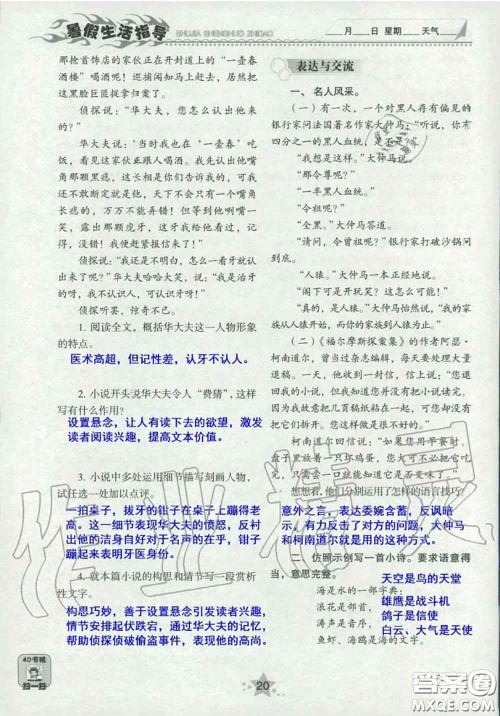 暑假生活指导
SHUJIA SHENGHUO ZHIDAO
月 日 星期 天气
那抢首饰店的家伙正在开封道上的“一壶春
酒楼”喝酒呢！巡捕闻知马上赶去，居然把
这黑脸巨匪捉拿归案了。
侦探说：“华大夫，您怎么认出他来
的？”
华大夫说：‘当时我也在‘一壶春’吃
饭，看见这家伙正跟人喝酒。我先认出他嘴
角那颗黑痣，这长相是你们告诉我的，可我
还不敢断定就是他，天下不会只有一个嘴角
长痣的，万万不能弄错！但等到他咧嘴一
笑，露出那颗虎牙，这牙我给他看过，记
得，没错！我便赶紧报信来了！”
侦探说：“我还是不明白，怎么一看牙
就认出来了呢！”华大夫哈哈大笑，说：“我是治牙
的呀，我不认识人，可认识牙呀！”
侦探听罢，惊奇不已。
1. 阅读全文，概括华大夫这一人物形象
的特点。
医术高超，但记性差，认牙不认人。
2. 小说开头说华大夫令人“费猜”，这样
写有什么作用？
设置悬念，让人有读下去的欲望，激发
读者阅读兴趣，提高文本价值。
3. 小说中多处运用细节描写刻画人物，
试任选一处加以点评。
一拍桌子，拔牙的钳子在桌子上蹦得老
高。这一细节表现华大夫的愤怒，反衬
出他的洁身自好对于名声的在乎，钳子
蹦起来表明牙医身份。
4. 就本篇小说的构思和情节写一段赏析
性文字。
构思巧妙，善于设置悬念引发读者兴趣，
情节安排起伏跌宕，通过华大夫的记忆，
帮助侦探侦破偷盗事件，表现人物的高尚
4D书城
扫一扫
表达与交流
一、名人风采。
（一）有一次，一个对黑人存有偏见的
银行家问法国著名作家大仲马：“听说，你有
四分之一的黑人血统，是不是？”
“我想是这样。”大仲马说。
“那令尊呢？”
“一半黑人血统。”
“令祖呢？”
“全黑。”大仲马答道。
“请问，令曾祖呢？”银行家打破沙锅问
到底。
“人猿。”大仲马一本正经地说。
“阁下可是开玩笑？这怎么可能！”
“真的，是人猿。”大仲马怡然说，“我
的家族从人猿开始，而你的家族到人猿为止。”
（二）《福尔摩斯探案集》的作者阿瑟·
柯南道尔，曾当过杂志编辑，每天要处理大量
退稿。一天，他收到一封信，信上说：“您退
回了我的小说，但我知道您并没有把小说读完，
因为我故意把几页稿纸粘在一起，您并没有把
它们拆开，您这样做是很不好的。”
柯南道尔回信说：“如果您用早餐时，
盘子里放着一只坏鸡蛋，您大可不必把它吃
完才能证明这只鸡蛋变味了。”
想想看，他们分别运用了怎样的语言技巧？
意外之言，表达委婉含蓄，反讽暗
示，有力反击了对方的无礼，大仲马
和柯南道尔就是用的这种方式。
二、仿照示例写一首小诗。要求语意得
当，意思完整。
海是水的一部字典：
浪花是部首，
涛声是音序，
鱼虾、海鸥是海的文字。
天空是鸟的天堂
雄鹰是战斗机
鸽子是信使
白云、大气是天使
20
作业精灵
答案圈
MXQE.COM